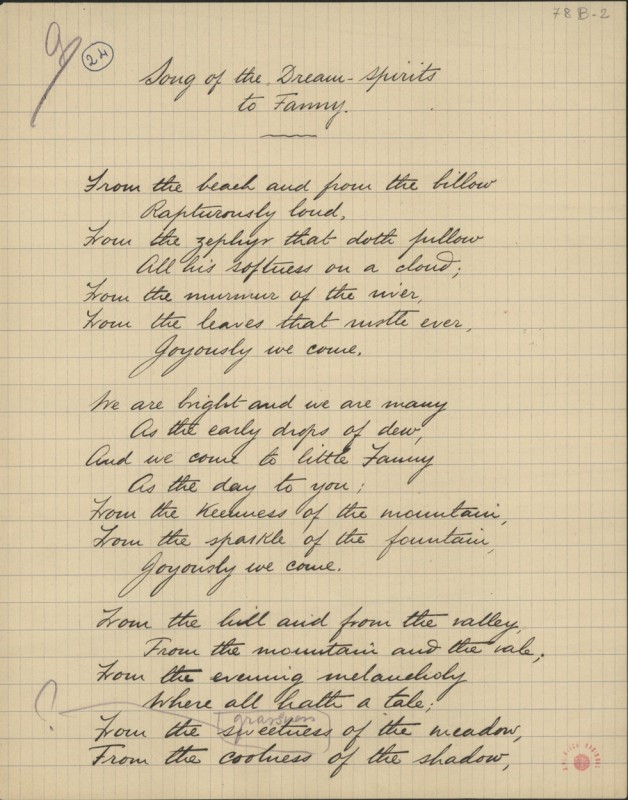 78 B-2
24
Song of the Dream-spirits
to Fanny.
From the beach and from the billow
Rapturously loud,
From the zephyr that doth pillow
All his softness on a cloud;
From the murmur of the river,
From the leaves that rustle ever,
Joyously we come.
We are bright and we are many
As the early drops of dew,
And we come to little Fanny
As the day to you;
From the keenness of the mountain,
From the sparkle of the fountain,
Joyously we come.
From the hill and from the valley,
From the mountain and the vale;
From the evening melancholy
Where all hath a tale;
?
From the sweetness of the meadow,
From the coolness of the shadow,